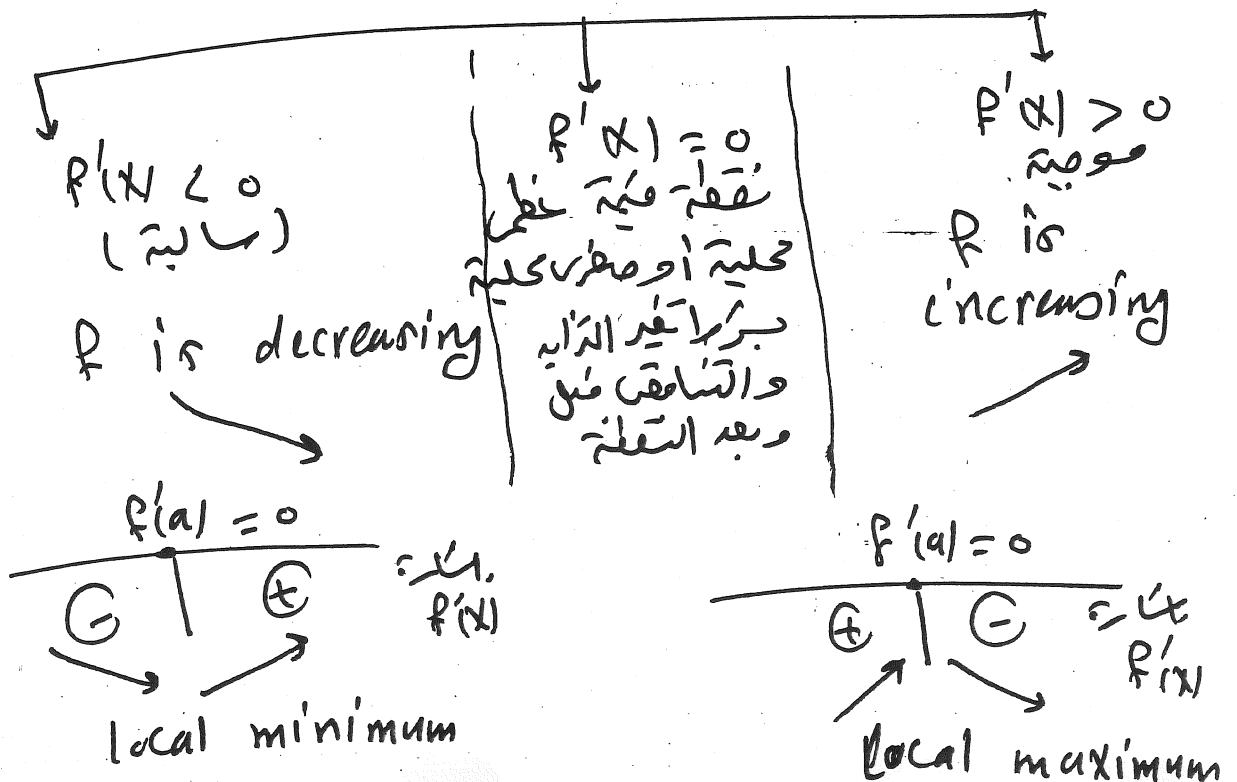 f'(x) < 0
(سالبة)
f is decreasing
f'(x) = 0
نقطة قيمة عظمى
محلية أو صغرى محلية
بشرط تغير التزايد
والتناقص قبل
وبعد النقطة
f'(x) > 0
موجبة
f is
increasing
f'(a) = 0
⊖ ⊕ إشارة
f'(x)
local minimum
f'(a) = 0
⊕ ⊖ إشارة
f'(x)
local maximum